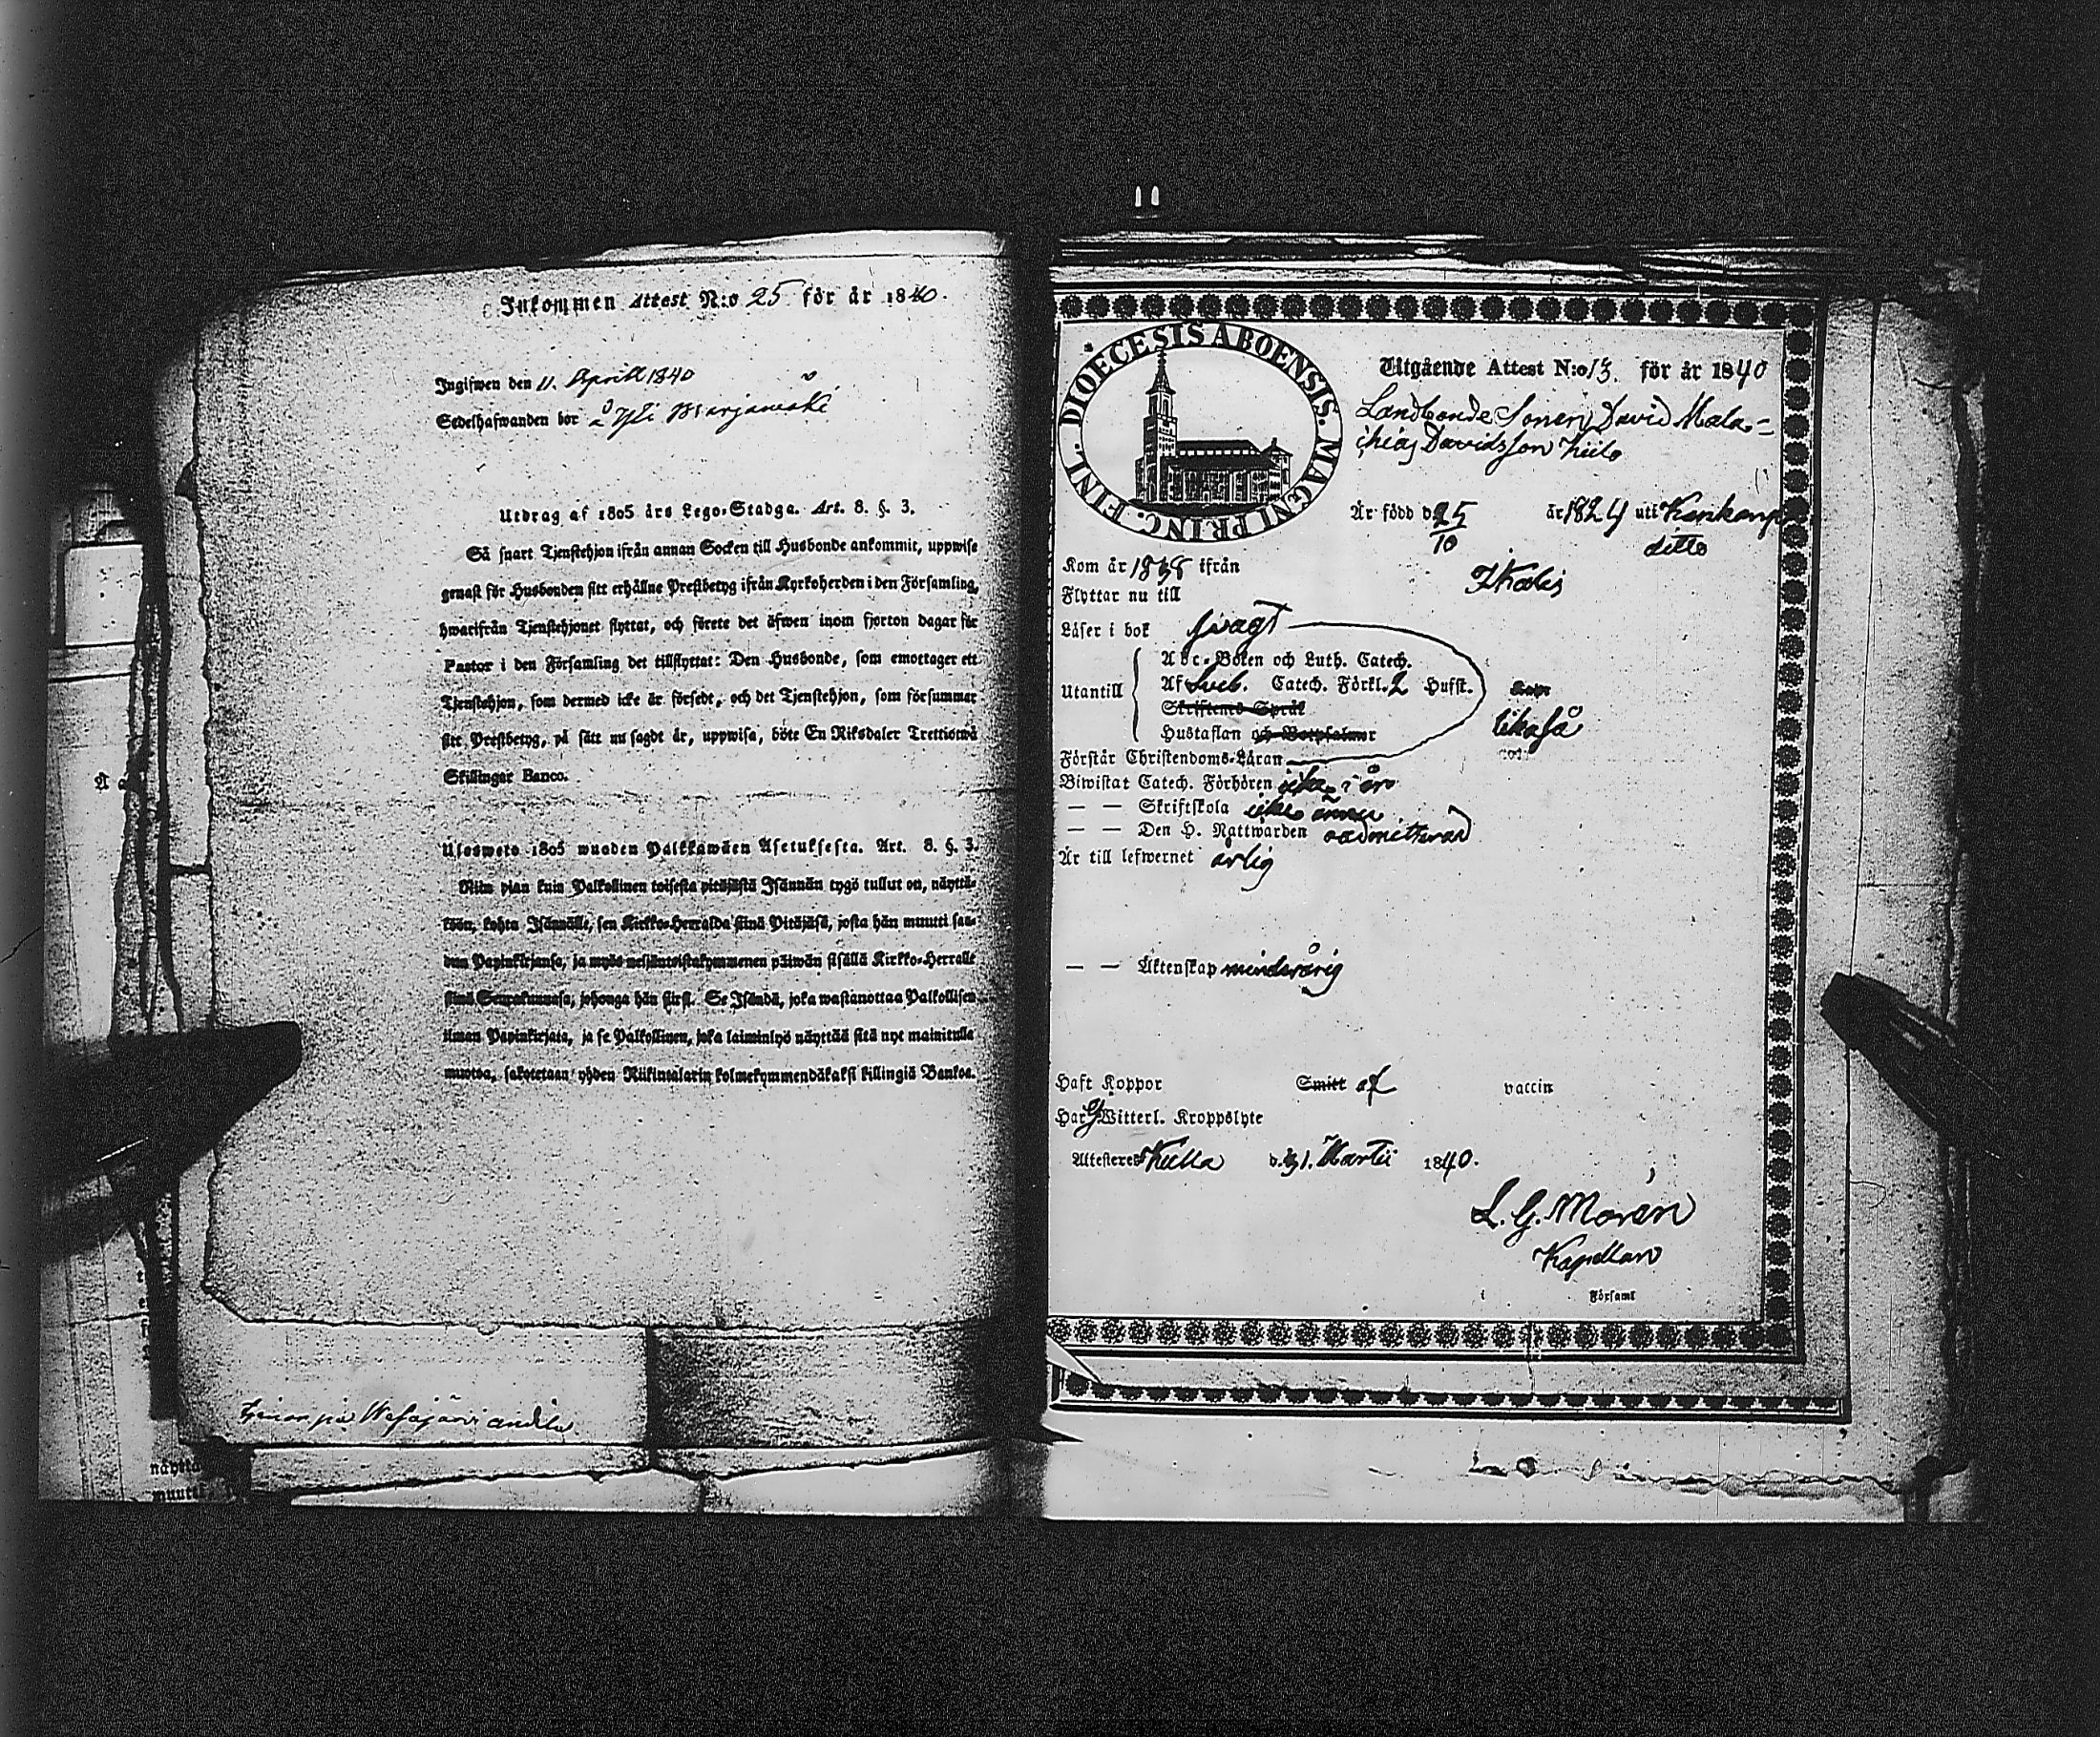 Inkommen Attest N:o 25 för år 1840.
Ingifwen den 11. Aprill 1840
Sedelhafwanden bor å Yli Marjamäki
Utdrag af 1805 års Lego-Stadga. Art. 8. §. 3.
Så snart Tjenstehjon ifrån annan Socken till Husbonde ankommit, uppwise
genast för Husbonden sitt erhållne Prestbetyg ifrån Kyrkoherden i den Församling,
hwarifrån Tjenstehjonet flyttat, och förete det äfwen inom fjorton dagar för
Pastor i den Församling det tillflyttat: Den Husbonde, som emottager ett
Tjenstehjon, som dermed icke är försedt, och det Tjenstehjon, som försummar
sitt Prestbetyg, på sätt nu sagdt är, uppwisa, böte En Riksdaler Trettiotwå
Skillingar Banco.
Ulosweto 1805 wuoden Palkkawäen Asetuksesta. Art. 8. §. 3.
Niin pian kuin Palkollinen toisesta pitäjästä Isännän tygö tullut on, näyttä-
köön, kohta Isännälle, sen Kirkko-Herralda siinä Pitäjäsä, josta hän muutti saa-
dun Papinkirjansa, ja myös neljäntoistakymmenen päiwän sisällä Kirkko-Herralle
siinä Seurakunnasa, johonga hän siirsi. Se Isändä, joka wastanottaa Palkollisen
ilman Papinkirjata, ja se Palkollinen, joka laiminlyö näyttää sitä nyt mainitulla
muotoa, sakotetaan yhden Riikintalarin kolmekymmendäkaksi killingiä Bankoa.
tjenar på Wesajärvi
näyttä
muutet
DIOECESIS ABOENSIS. MAGNI PRINC. FINL.
Utgående Attest N:o 13. för år 1840
Landbonde Sonen David Mala-
chias Davidsson Kiilo
Är född d. 25/10 år 1824 uti Kankanp
ditto
Kom år 1838 ifrån
Ikalis
Flyttar nu till
Läser i bok svagt
Abc-Boken och Luth. Catech.
Utantill Af Sveb. Catech. Förkl. 2 Hufst.
Skriftenes Språk
likaså
Hustaflan och Botpsalmer
Förstår Christendoms-Läran
Biwistat Catech. Förhören icke i år
— — Skriftskola icke ännu
— — Den H. Nattwarden oadmitterad
Är till lefwernet ärlig
— — Äktenskap minderårig
Haft Koppor Smitt af vaccin
Har ej Witterl. Kroppslyte
Attesteres Kulla d. 31. Martii 1840.
L. G. Morén
Kapellan
i Församl